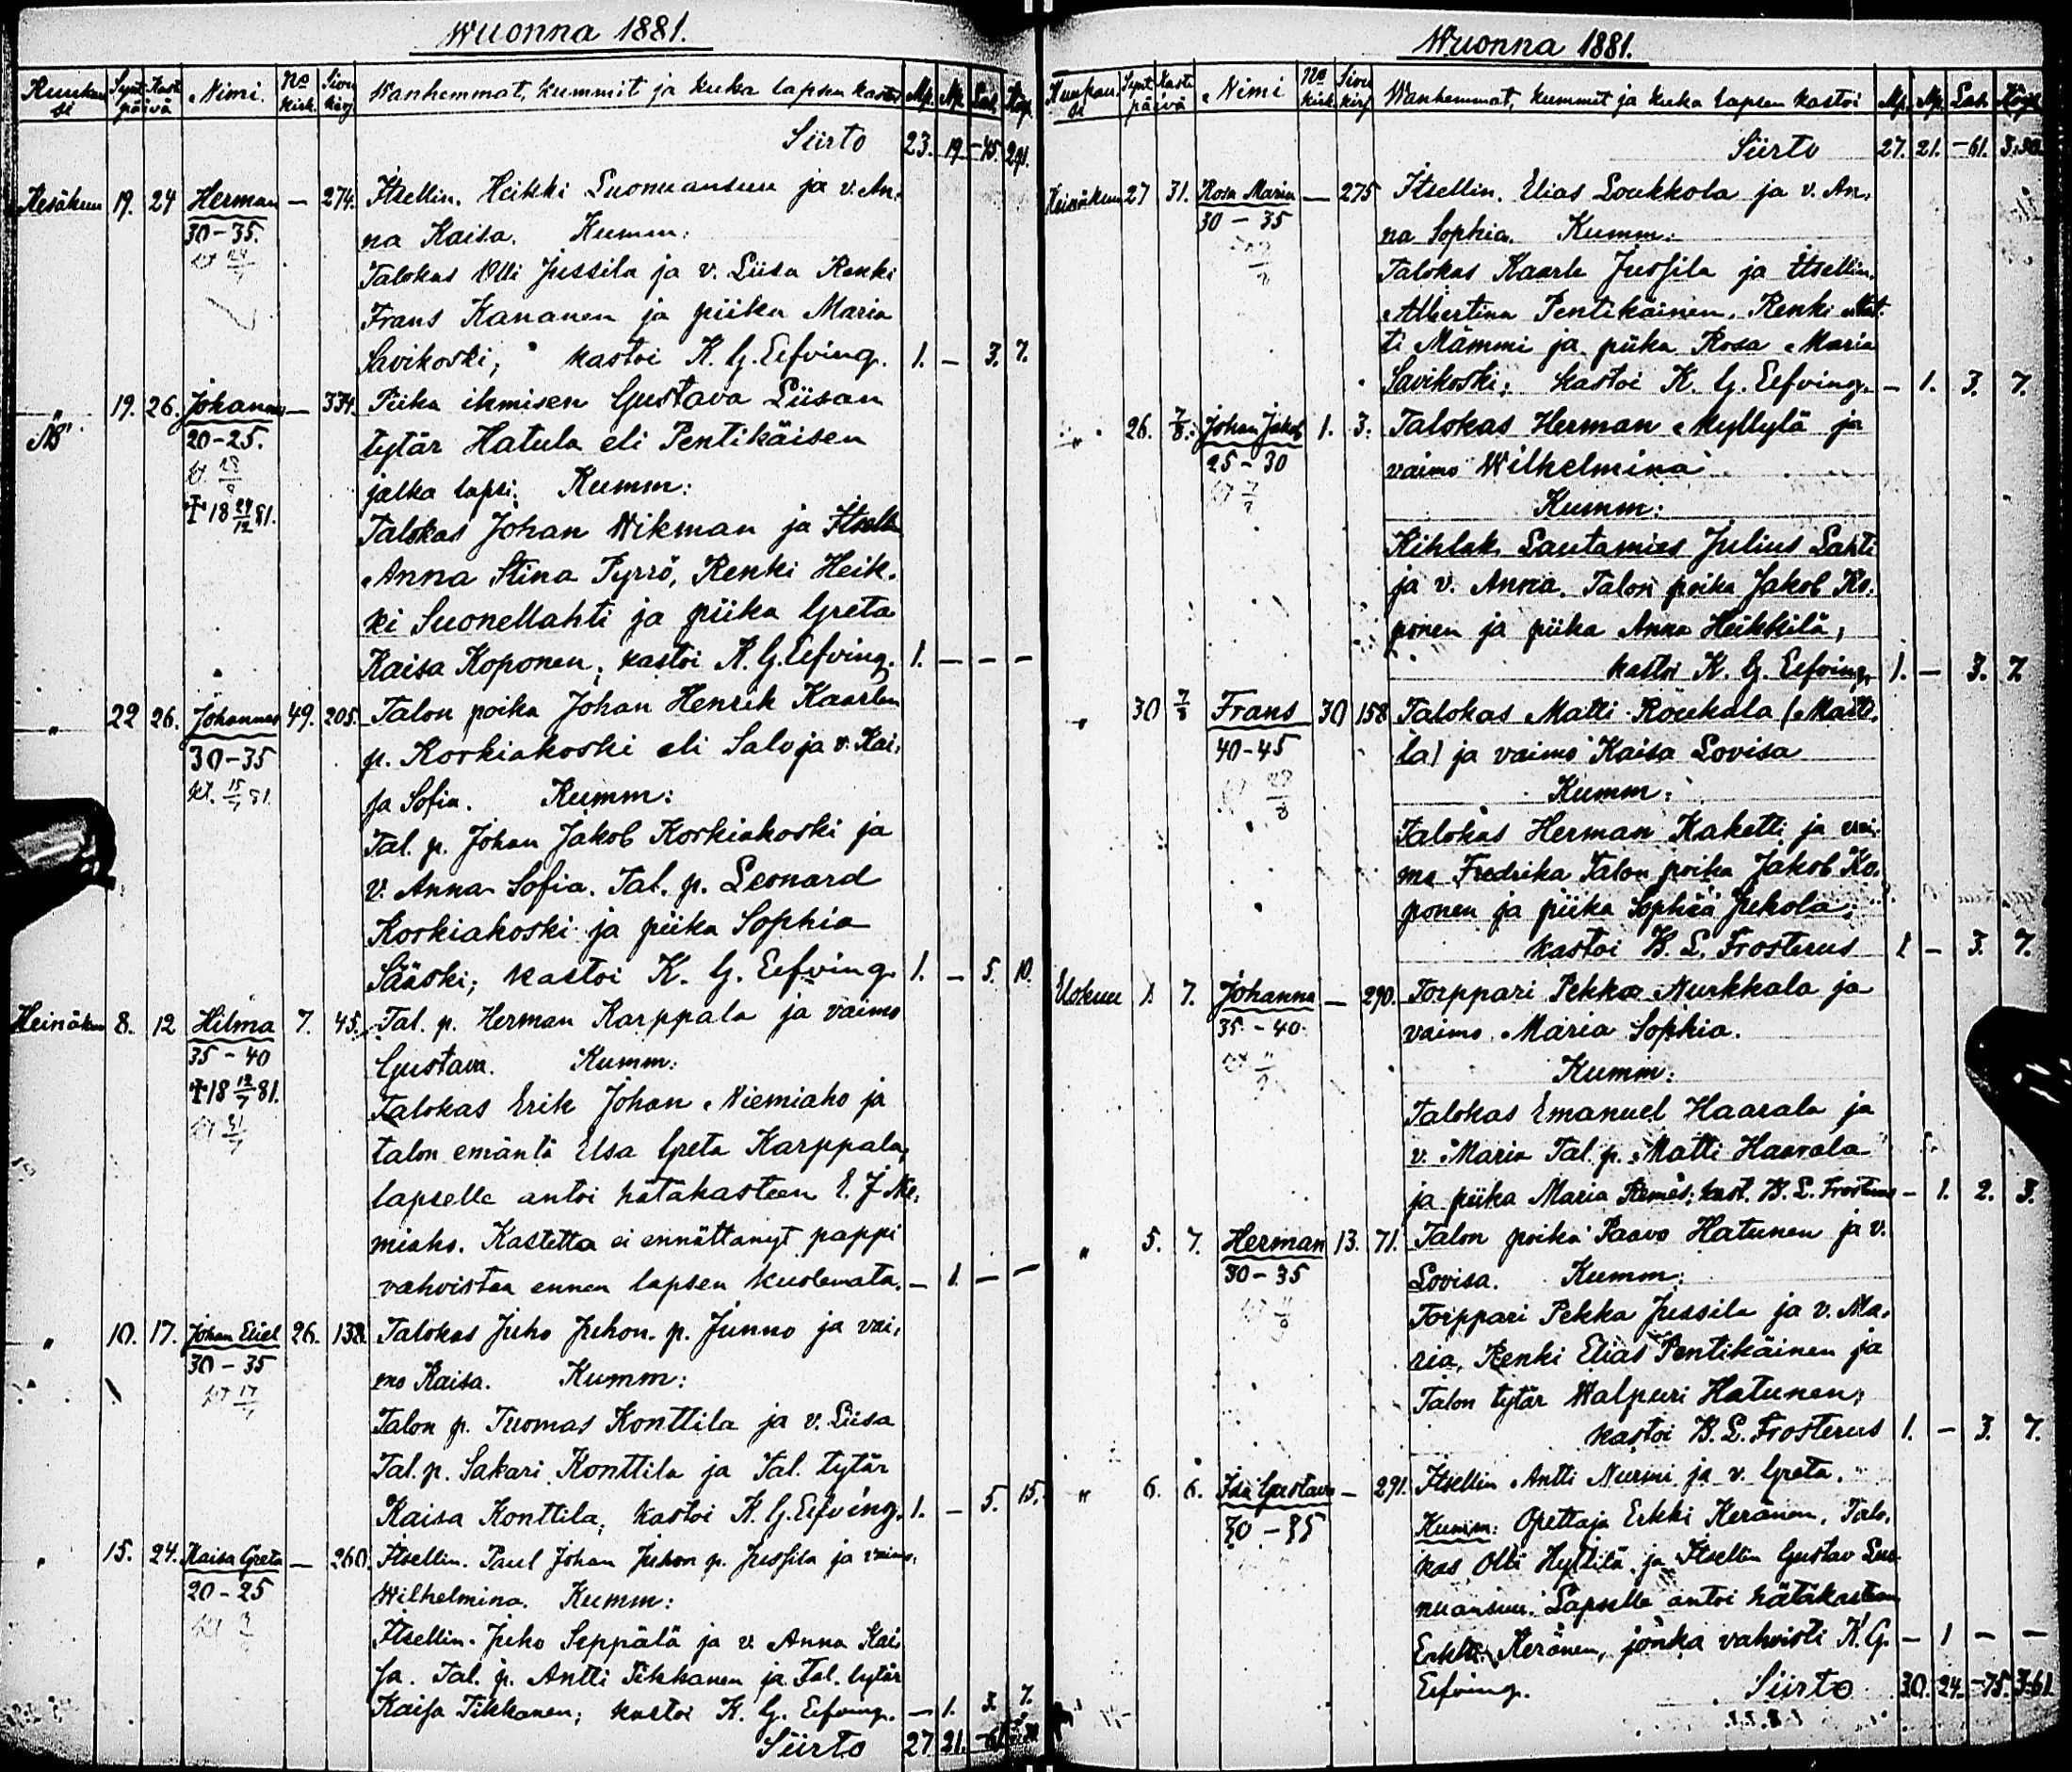 Wuonna 1881.
Kuukausi Synt. Kaste päivä Nimi. No kirk. Sivu kirj. Wanhemmat, kummit ja kuka lapsen kastoi Mp. Np. Lah. Köyh.
Siirto 23. 19. -45. 291.
Kesäkuu 19. 24 Herman — 274. Itsellin. Heikki Luonuansuu ja v. An-
30-35. na Kaisa. Kumm:
Talokas Olli Jussila ja v. Liisa Renki
Frans Kananen ja piika Maria
Savikoski; kastoi K. G. Eefving. 1. — 3. 7.
" 19. 26. Johannes — 334. Piika ihmisen Gustava Liisan
NB 20-25. tytär Hatula eli Pentikäisen
jalka lapsi. Kumm:
✝ 18 29/12 81. Talokas Johan Wikman ja Itsellin
Anna Stina Pyrrö, Renki Heik-
ki Suonellahti ja piika Greta
Kaisa Koponen; kastoi K. G. Eefving. 1. — — —
" 22 26. Johannes 49. 205. Talon poika Johan Henrik Kaarlen
30-35 p. Korkiakoski eli Salo ja v. Kai-
kt. 15/7 81. sa Sofia. Kumm:
Tal. p. Johan Jakob Korkiakoski ja
v. Anna Sofia. Tal. p. Leonard
Korkiakoski ja piika Sophia
Sääski; kastoi K. G. Eefving. 1. — 5. 10.
Heinäkuu 8. 12 Hilma 7. 45. Tal. p. Herman Karppala ja vaimo
35-40 Gustava. Kumm:
✝ 18 12/7 81. Talokas Erik Johan Niemiaho ja
talon emäntä Elsa Greta Karppala;
lapselle antoi hätäkasteen E. J. Nie-
miaho. Kastetta ei ennättänyt pappi
vahvistaa ennen lapsen kuolemata. — 1. — —
" 10. 17. Johan Eliel 26. 138. Talokas Juho Juhon. p. Junno ja vai-
30-35 mo Kaisa. Kumm:
kt 17/7 Talon p. Tuomas Konttila ja v. Liisa
Tal. p. Sakari Konttila ja Tal. tytär
Kaisa Konttila; kastoi K. G. Eefving. 1. — 5. 15.
" 15. 24. Kaisa Greta — 260. Itsellin. Paul Johan Juhon p. Jussila ja vaimo
20-25 Wilhelmina. Kumm:
Itsellin. Juho Seppälä ja v. Anna Kai-
sa. Tal. p. Antti Tikkanen ja Tal. tytär
Kaisa Tikkanen; kastoi K. G. Eefving. — 1. 3. 7.
Siirto 27 21. -61
Wuonna 1881.
Kuukausi Synt. Kaste päivä Nimi No kirk. Sivu kirj. Wanhemmat, kummit ja kuka lapsen kastoi Mp. Np. Lah. Köyh
Siirto 27. 21. -61. 3.30.
Heinäkuu 27 31. Rosa Maria — 275 Itsellin. Elias Loukkola ja v. An-
30-35 na Sophia. Kumm:
Talokas Kaarle Jussila ja Itsellin.
Albertina Pentikäinen. Renki Mat-
ti Mämmi ja piika Rosa Maria
Savikoski; kastoi K. G. Eefving. — 1. 3. 7.
" 26. 7/8. Johan Jakob 1. 3. Talokas Herman Myllylä ja
25-30 vaimo Wilhelmina
Kumm:
Kihlak. Lautamies Julius Lahti
ja v. Anna. Talon poika Jakob Ko-
ponen ja piika Anna Heikkilä;
kastoi K. G. Eefving. 1. — 3. 7.
" 30 7/8 Frans 30 158 Talokas Matti Roukala (Matti-
40-45 la) ja vaimo Kaisa Lovisa
Kumm:
Talokas Herman Kaketti ja vai-
mo Fredrika Talon poika Jakob Ko-
ponen ja piika Sophia Jukola;
kastoi B. L. Frosterus 1 — 3. 7.
Elokuu 1. 7. Johanna — 290. Torppari Pekka Nurkkala ja
35-40. vaimo Maria Sophia.
Kumm:
Talokas Emanuel Haarala ja
v. Maria Tal. p. Matti Haarala
ja piika Maria Remes; kast. B. L. Frosterus — 1. 2. 3.
" 5. 7. Herman 13. 71. Talon poika Paavo Hatunen ja v.
30-35 Lovisa. Kumm:
Torppari Pekka Jussila ja v. Ma-
ria, Renki Elias Pentikäinen ja
Talon tytär Walpuri Hatunen;
kastoi B. L. Frosterus 1. — 3. 7.
" 6. 6. Ida Gustava — 291. Itsellin Antti Nurmi ja v. Greta.
30-35 Kumm: Opettaja Erkki Keränen, Talo-
kas Olli Hyttilä ja Itsellin Gustav Luo-
nuansuu. Lapselle antoi hätäkasteen
Erkki Keränen, jonka vahvisti K. G. — 1 — —
Eefving. Siirto 30. 24. -75. 3.61.